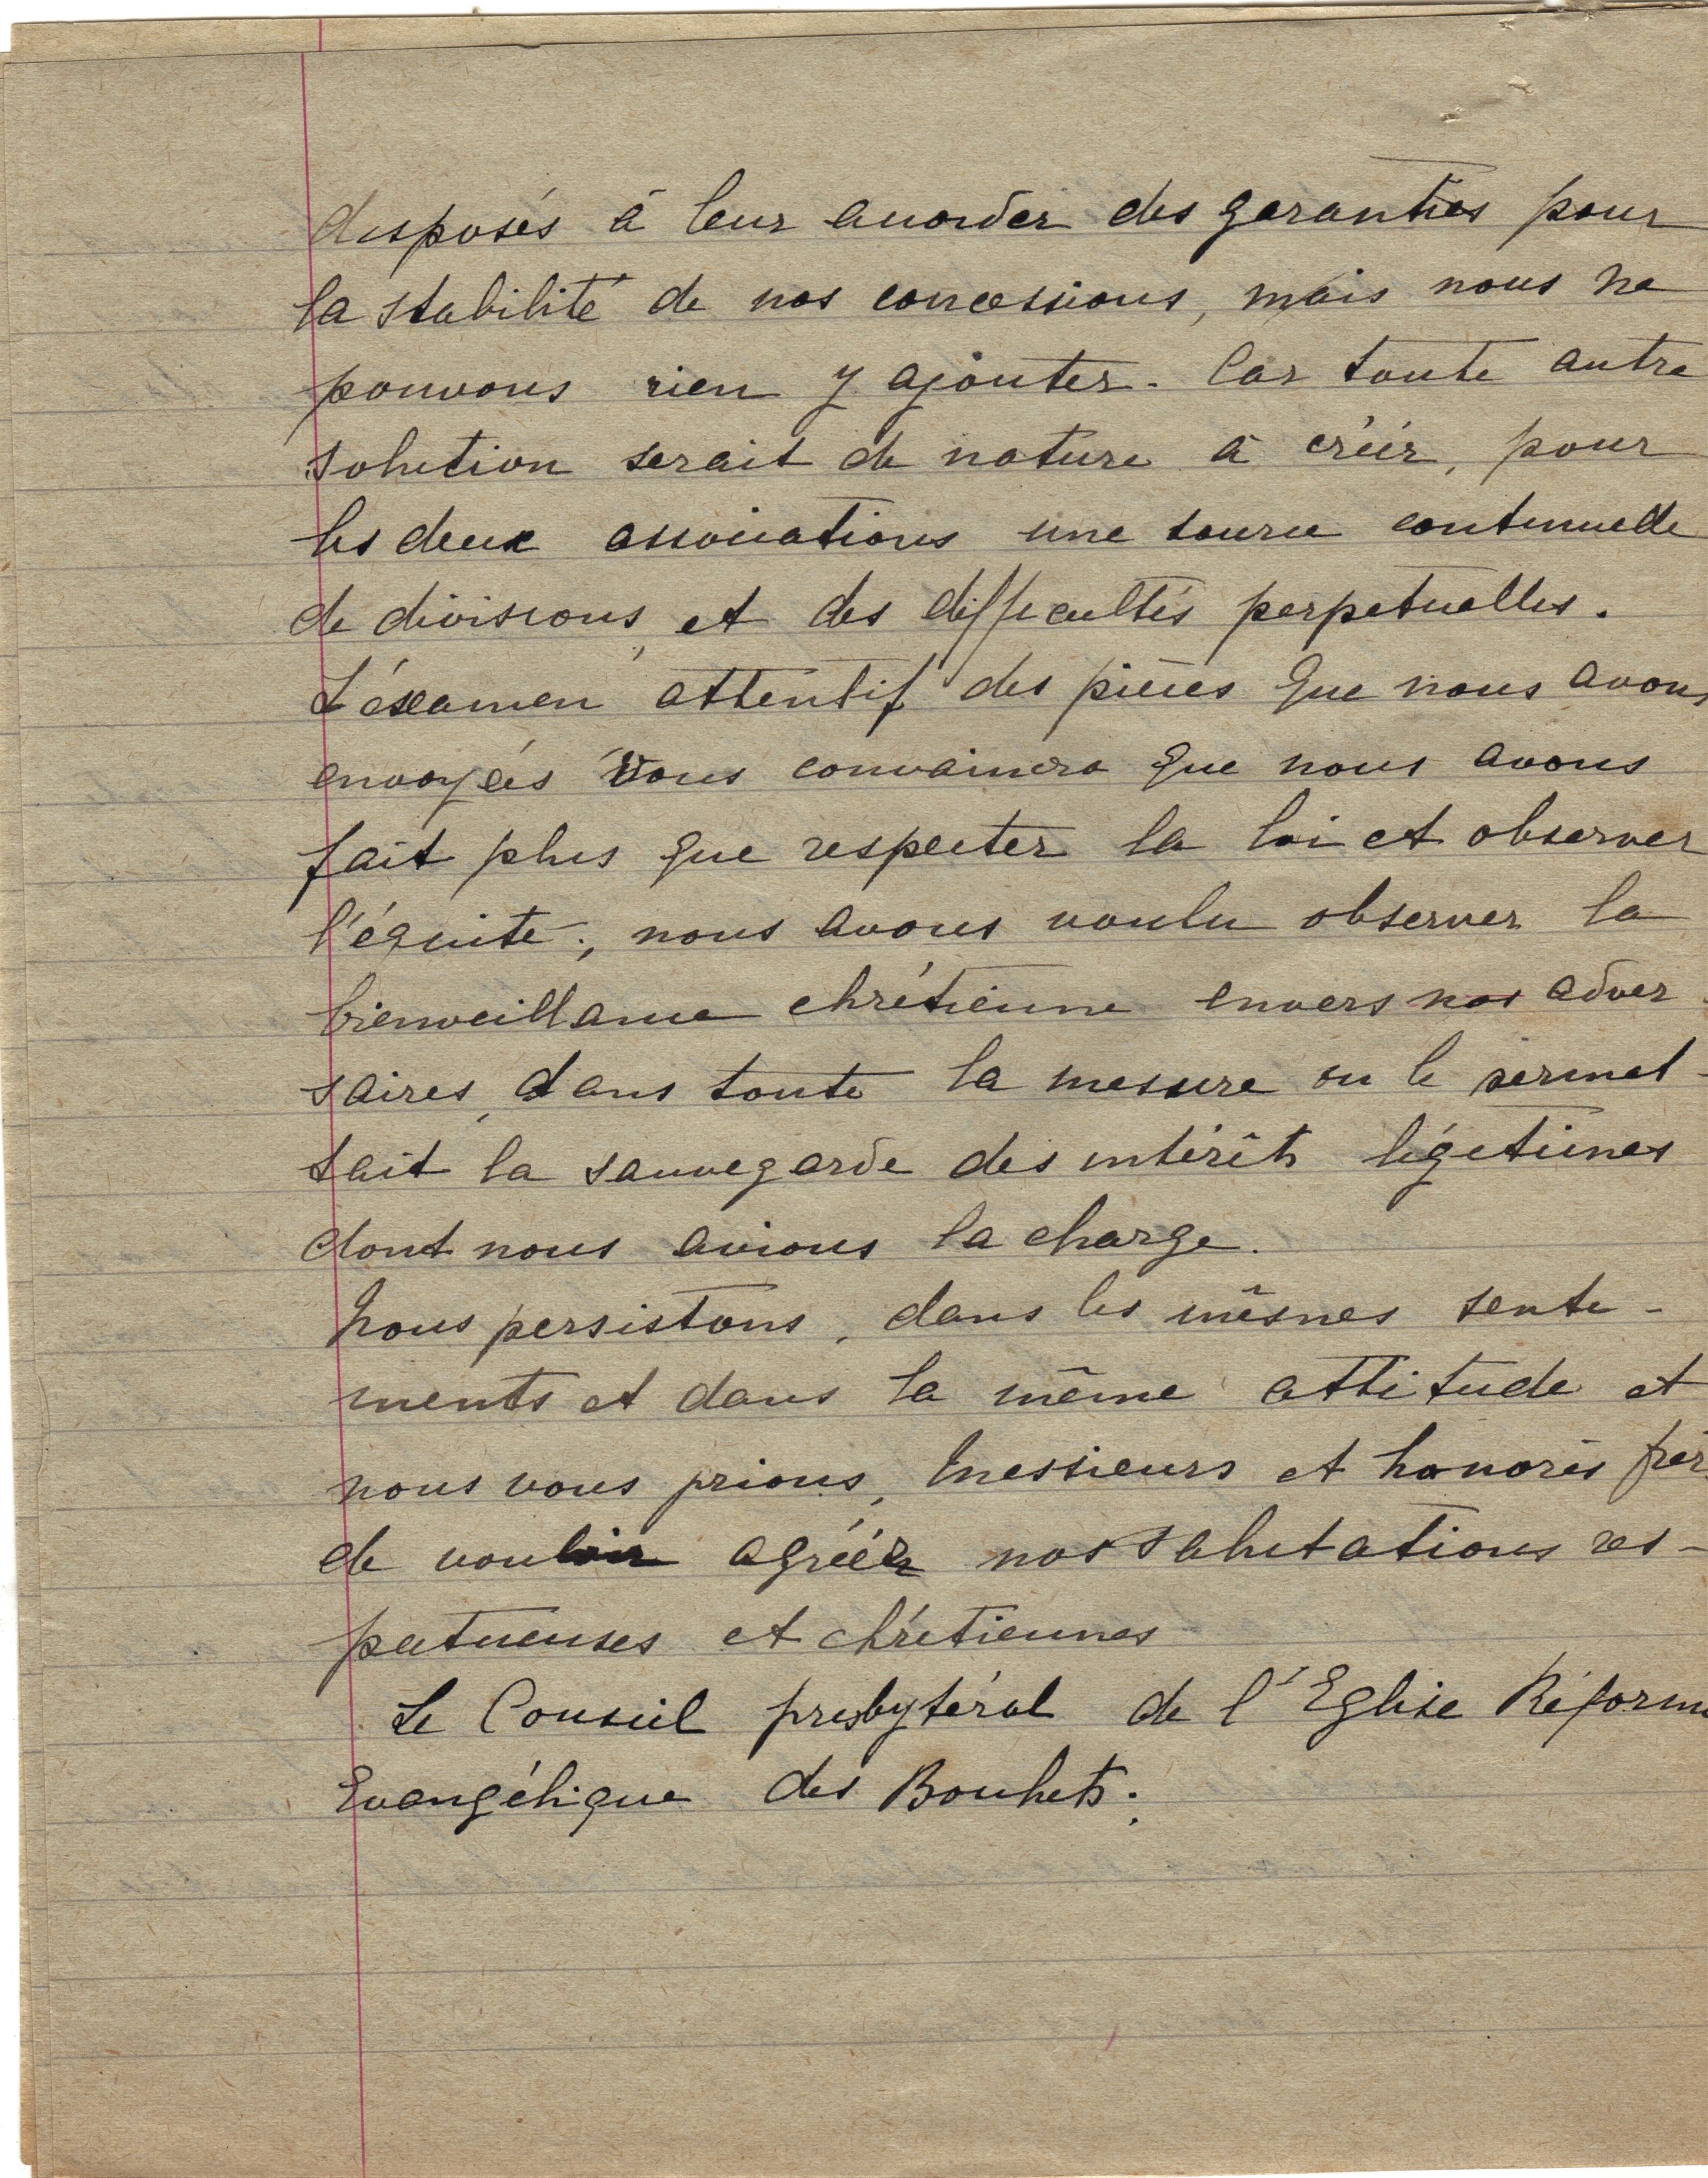 disposés à leur accorder des garanties pour
la stabilité de nos concessions, mais nous ne
pouvons rien y ajouter. Car toute autre
solution serait de nature à créer, pour
les deux associations une source continuelle
de divisions, et des difficultés perpetuelles.
L'éxamen attentif des pièces que nous avons
envoyées vous convaincra que nous avons
fait plus que respecter la loi et observer
l'équité ; nous avons voulu observer la
bienveillance chrétienne envers nos adver-
saires, dans toute la mesure ou le permet-
tait la sauvegarde des intérêts légitimes
dont nous avions la charge.
Nous persistons, dans les mêmes senti-
ments et dans la même attitude et
nous vous prions, Messieurs et honorés frèr
de vouloir agréér nos salutations res-
pectueuses et chrétiennes
Le Conseil presbytéral de l'Eglise Réformé
Evangélique des Bouhets.